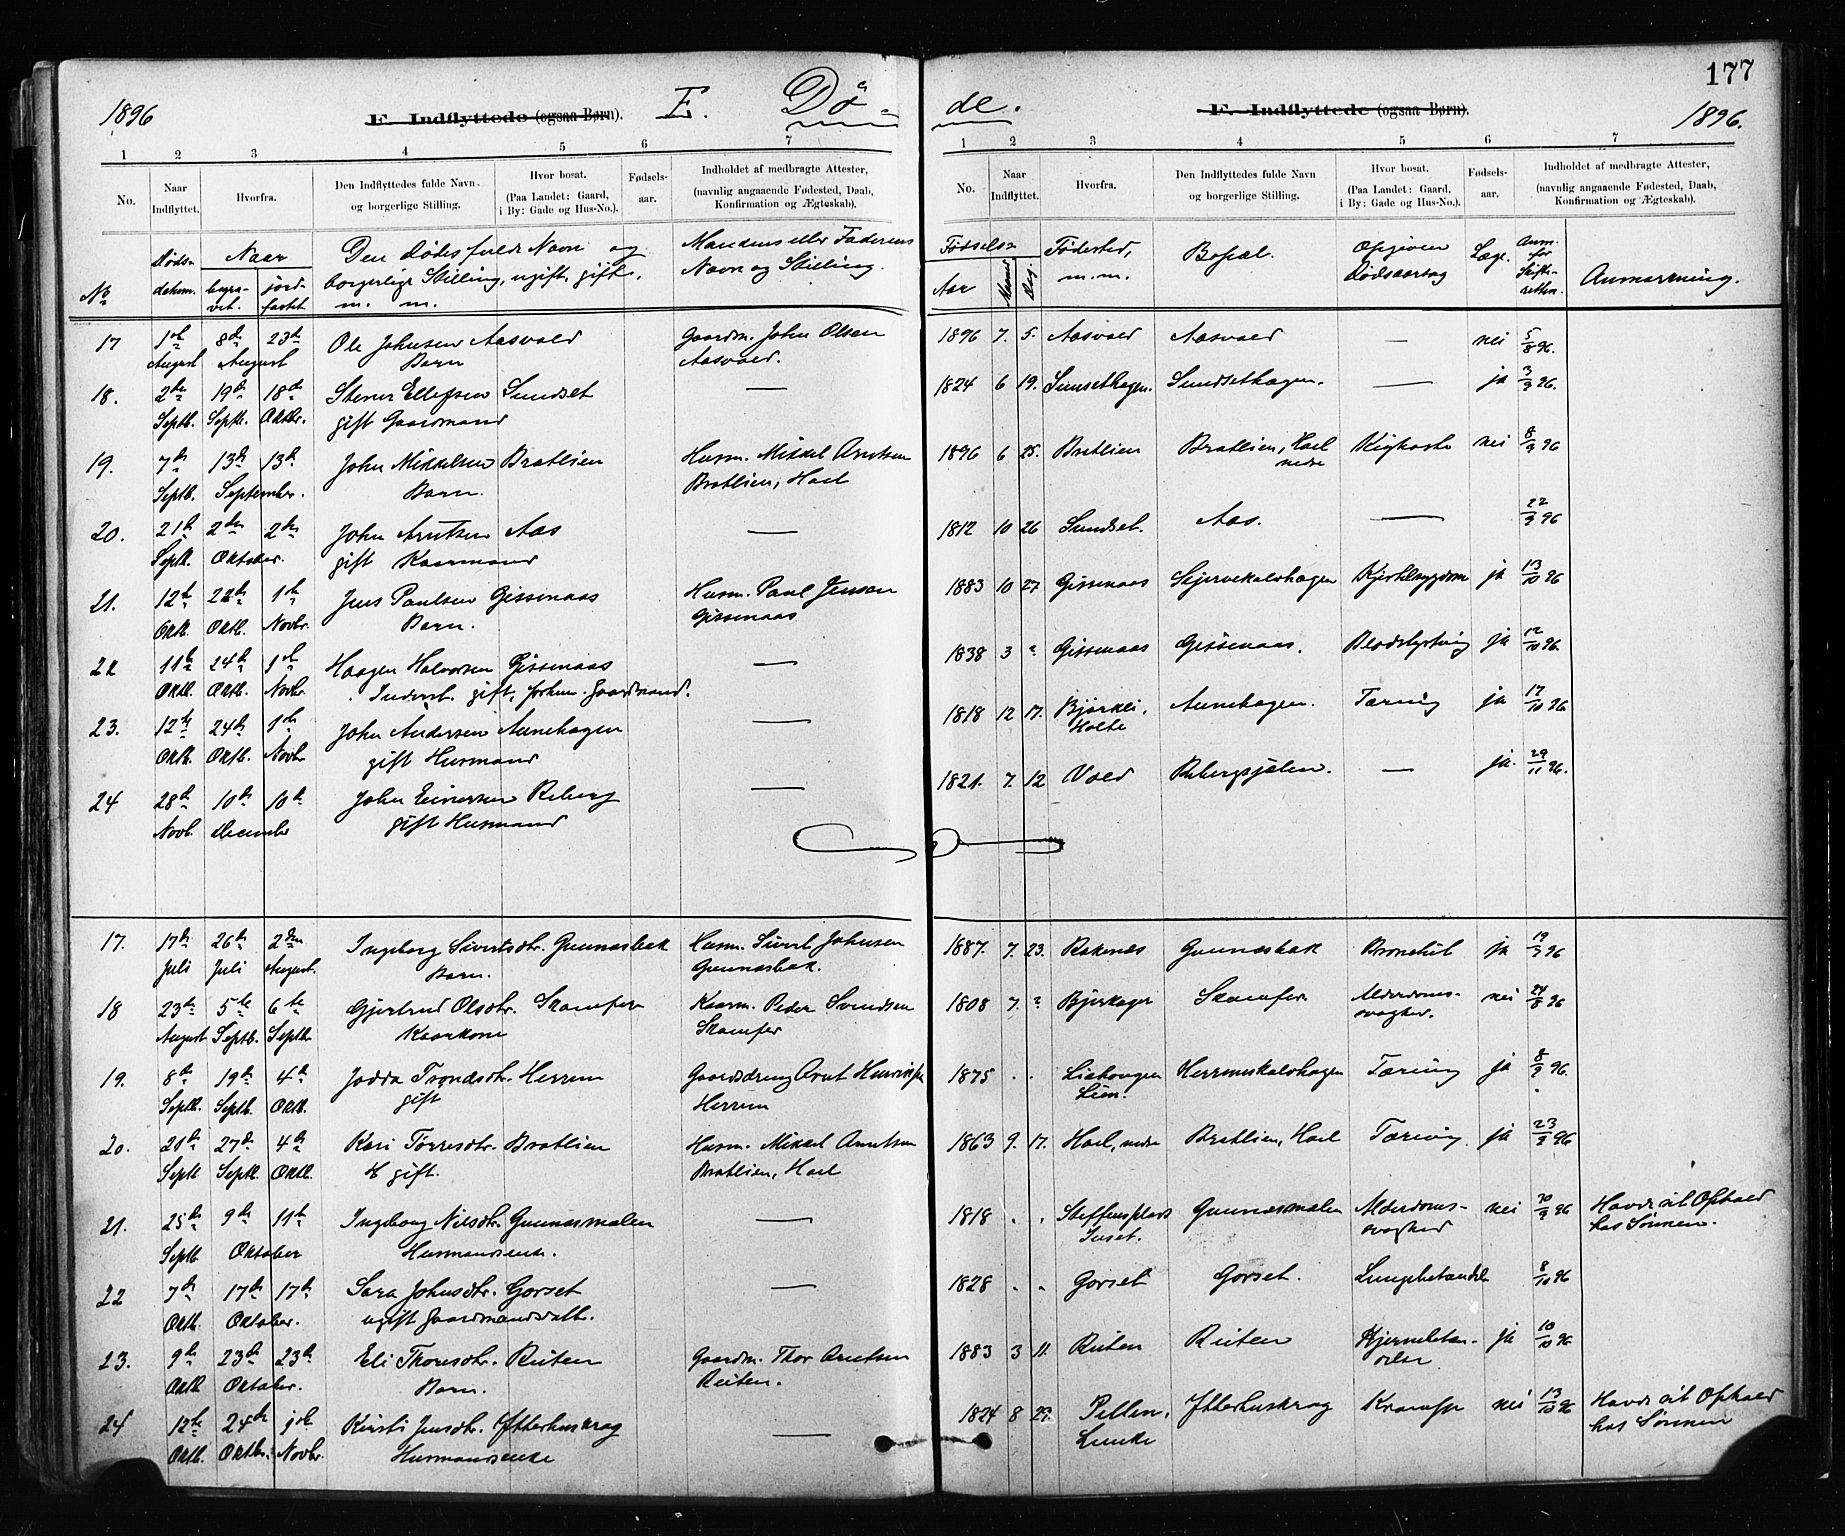 177
1896
F. Indflyttede (ogsaa Børn).
E. Dö-
de.
F. Indflyttede (ogsaa Børn).
1896.
1 2 3 4 5 6 7
No.
Naar Indflyttet.
Hvorfra.
Den Indflyttedes fulde Navn og borgerlige Stilling.
Hvor bosat. (Paa Landet: Gaard, i By: Gade og Hus-No.).
Fødsels-aar.
Indholdet af medbragte Attester, (navnlig angaaende Fødested, Daab, Konfirmation og Ægteskab).
1 2 3 4 5 6 7
No.
Naar Indflyttet.
Hvorfra.
Den Indflyttedes fulde Navn og borgerlige Stilling.
Hvor bosat. (Paa Landet: Gaard, i By: Gade og Hus-No.).
Fødsels-aar.
Indholdet af medbragte Attester, (navnlig angaaende Fødested, Daab, Konfirmation og Ægteskab).
No
Døds-
datum.
Naar
begra-
vet.
jord-
fæstet
Den dødes fulde Navn og
borgerlige Stilling, ugift, gift,
m. m.
Mandens eller Faderens
Navn og Stilling.
Fødsels-
Aar
Maaned
Dag
Fødested,
m. m.
Bopæl.
Opgiven
Dødsaarsag
Læge.
Anm.
for
Skifte-
retten.
Anmærkning.
17 1ste 8de 23de Ole Johnsen Aasvold Gaardm. John Olsen 1896 7. 5. Aasvold Aasvold — nei 5/8 96.
August August Barn Aasvold.
18. 2den 19de 18de Stener Ellefsen Sundset — 1824 6 19. Sunsethagen. Sundsethagen. — ja 3/9 96.
Septb. Septb. Oktbr. gift Gaardmand
19. 7de 13de 13de John Mikkelsen Bratlien Husm. Mikkel Arntsen 1896 6 25. Bratlien Bratlien, Hoel nedre Kighoste nei 8/9 96
Septb. September. Barn. Bratlien, Hoel
20. 21de 2den 2den John Arntsen Aas — 1812 10 26 Sundset. Aas. — 22/9 96
Septb. Oktober. gift Kaarmand
21. 12te 22de 1ste Jens Paulsen Gissenaas Husm. Paul Jensen 1883 10 27 Gissenaas Kjertelsygdom ja 13/10 96
Oktb. Oktb. Novbr. Barn. Gissenaas
22 11te 24de 1ste Haagen Halvorsen Gissenaas — 1838 3 " Gissenaas Gissenaas. Blodstyrtning ja 12/10 96.
Oktb. Oktb. Novbr. Inderst. gift, forhen. Gaardmand.
23. 12te 24de 1ste John Andersen Aunehagen — 1818 12 17. Bjørkli, Holte Aunehagen. Tæring ja 17/10 96.
Oktb. Oktb. Novbr gift Husmand
24 28de 10de 10de John Einersen Reberg — 1821. 7. 12 Vold Rebergsjølen. — ja. 29/11 96.
Novb. December gift Husmand
17. 17de 26de 2den Ingeborg Sivertsdtr. Gunnesbak Husm. Sivert Johnsen 1887. 7. 23. Gunnesbak ja 96
Juli Juli August. Barn. Gunnesbak.
18 23de 5te 6te Gjertrud Olsdtr. Skamfer Kaarm. Peder Svendsen 1808 7. " Bjerkager Skamfer Alderdoms-svaghed. nei 24/8 96
August Septb. Septbr Kaarkone Skamfer
19. 8de 19de 4de Jodda Trondsdtr. Herrem Gaardsdreng Arnt 1875 . . Liehaugen Lien. Tæring ja 8/9 96.
Septb. Septb. Oktb. gift Herrem
20. 21de 27de 4de Kari Torresdtr. Bratlien Husm. Mikkel Arntsen 1863 9. 17. Hoel, nedre Bratlien, Hoel Tæring ja 23/9 96
Septb Septb. Oktbr. gift. Bratlien, Hoel
21. 25de 9de 11te Ingeborg Nilsdtr. Gunnesmoen — 1818 . . Steffensplads Inset. Gunnesmoen Alderdoms-svaghed nei 30/9 96 Havde sit Ophold hos Sønnen.
Septb Oktober Husmandsenke.
22 7de 17de 17de Sara Johnsdtr. Gorset — 1828 . . Gorset Gorset. Lungebetændelse 8/10 96
Oktb. Oktober. ugift Gaardmandsdatter.
23. 9de 23de 23de Eli Thoresdtr. Reiten Gaardm. Thor Arntsen 1883 3 11. Reiten Reiten Hjernebetændelse ja 10/10 96
Oktb Oktober. Barn. Reiten.
24 12te 24de 1ste Kirsti Jensdtr. Ytterhuskrog — 1824 8 29. Lunke Ytterhuskrog Krampe nei 13/10 96 Havde sit Ophold hos Sønnen
Oktb. Oktbr. Novbr. Husmandsenke